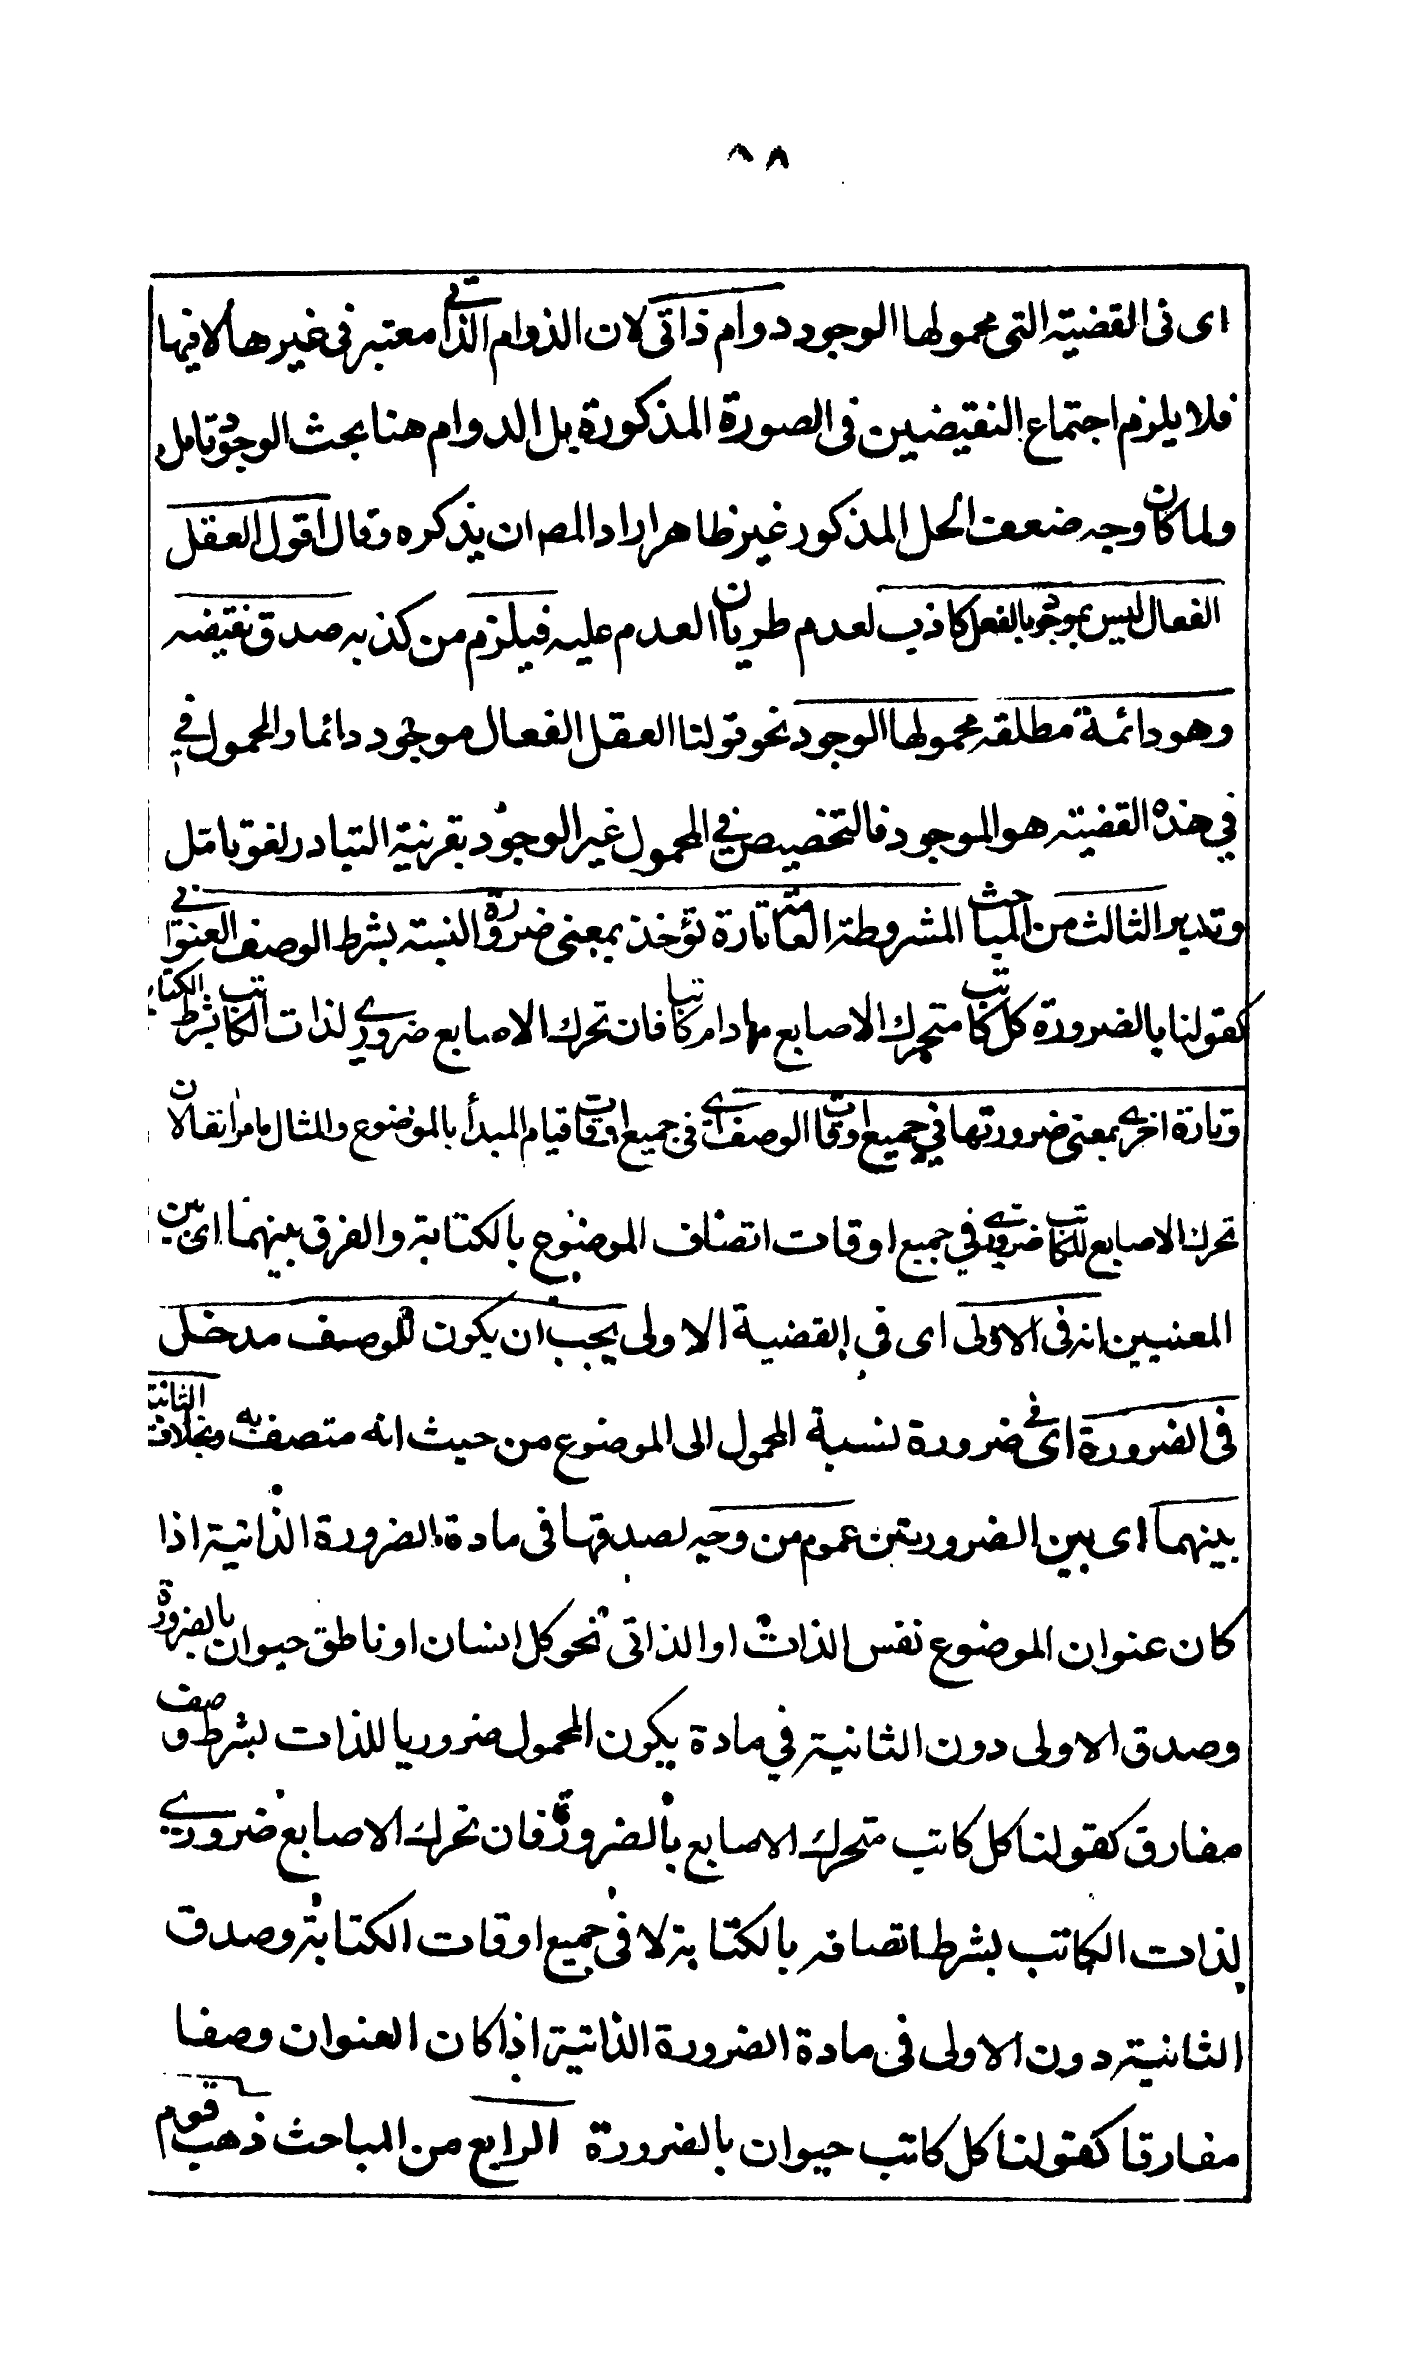 ٨٨
اى فى القضية التى محمولها الوجود دوام ذاتى لان الدوام الذاتى معتبر فى غيرها لا فيها
فلا يلزم اجتماع النقيضين فى الصورة المذكورة بل الدوام هنا بحث الوجود تامل
ولما كان وجه ضعف الحل المذكور غير ظاهر اراد المص ان يذكره وقال اقول العقل
الفعال ليس بموجود بالفعل كاذب لعدم طريان العدم عليه فيلزم من كذبه صدق نقيضه
وهو دائمة مطلقة محمولها الوجود نحو قولنا العقل الفعال موجود دائما والمحمول في
في هذه القضية هو الموجود فالتخصيص في المحمول غير الوجود بقرينة التبادر لغو تامل
وتدبر الثالث من المباحث المشروطة العامة تارة تؤخذ بمعنى ضرورة النسبة بشرط الوصف العنوانى
كقولنا بالضرورة كل كاتب متحرك الاصابع مادام كاتبا فان تحرك الاصابع ضروري لذات الكاتب بشرط الكتابة
وتارة اخرى بمعنى ضرورتها في جميع اوقات الوصف اى فى جميع اوقات قيام المبدأ بالموضوع والمثال مامر انفا لان
تحرك الاصابع للكاتب ضروري في جميع اوقات اتصاف الموضوع بالكتابة والفرق بينهما اى بين
المعنيين انه فى الاولى اى فى القضية الاولى يجب ان يكون للوصف مدخل
فى الضرورة اى فى ضرورة نسبة المحمول الى الموضوع من حيث انه متصف به وبخلاف الثانية
بينهما اى بين الضروريتين عموم من وجه لصدقها فى مادة الضرورة الذاتية اذا
كان عنوان الموضوع نفس الذات او الذاتى نحو كل انسان او ناطق حيوان بالضرورة
وصدق الاولى دون الثانية في مادة يكون المحمول ضروريا للذات بشرط وصف
مفارق كقولنا كل كاتب متحرك الاصابع بالضرورة فان تحرك الاصابع ضروري
لذات الكاتب بشرط اتصافه بالكتابة لا فى جميع اوقات الكتابة وصدق
الثانية دون الاولى فى مادة الضرورة الذاتية اذا كان العنوان وصفا
مفارقا كقولنا كل كاتب حيوان بالضرورة الرابع من المباحث ذهب قوم